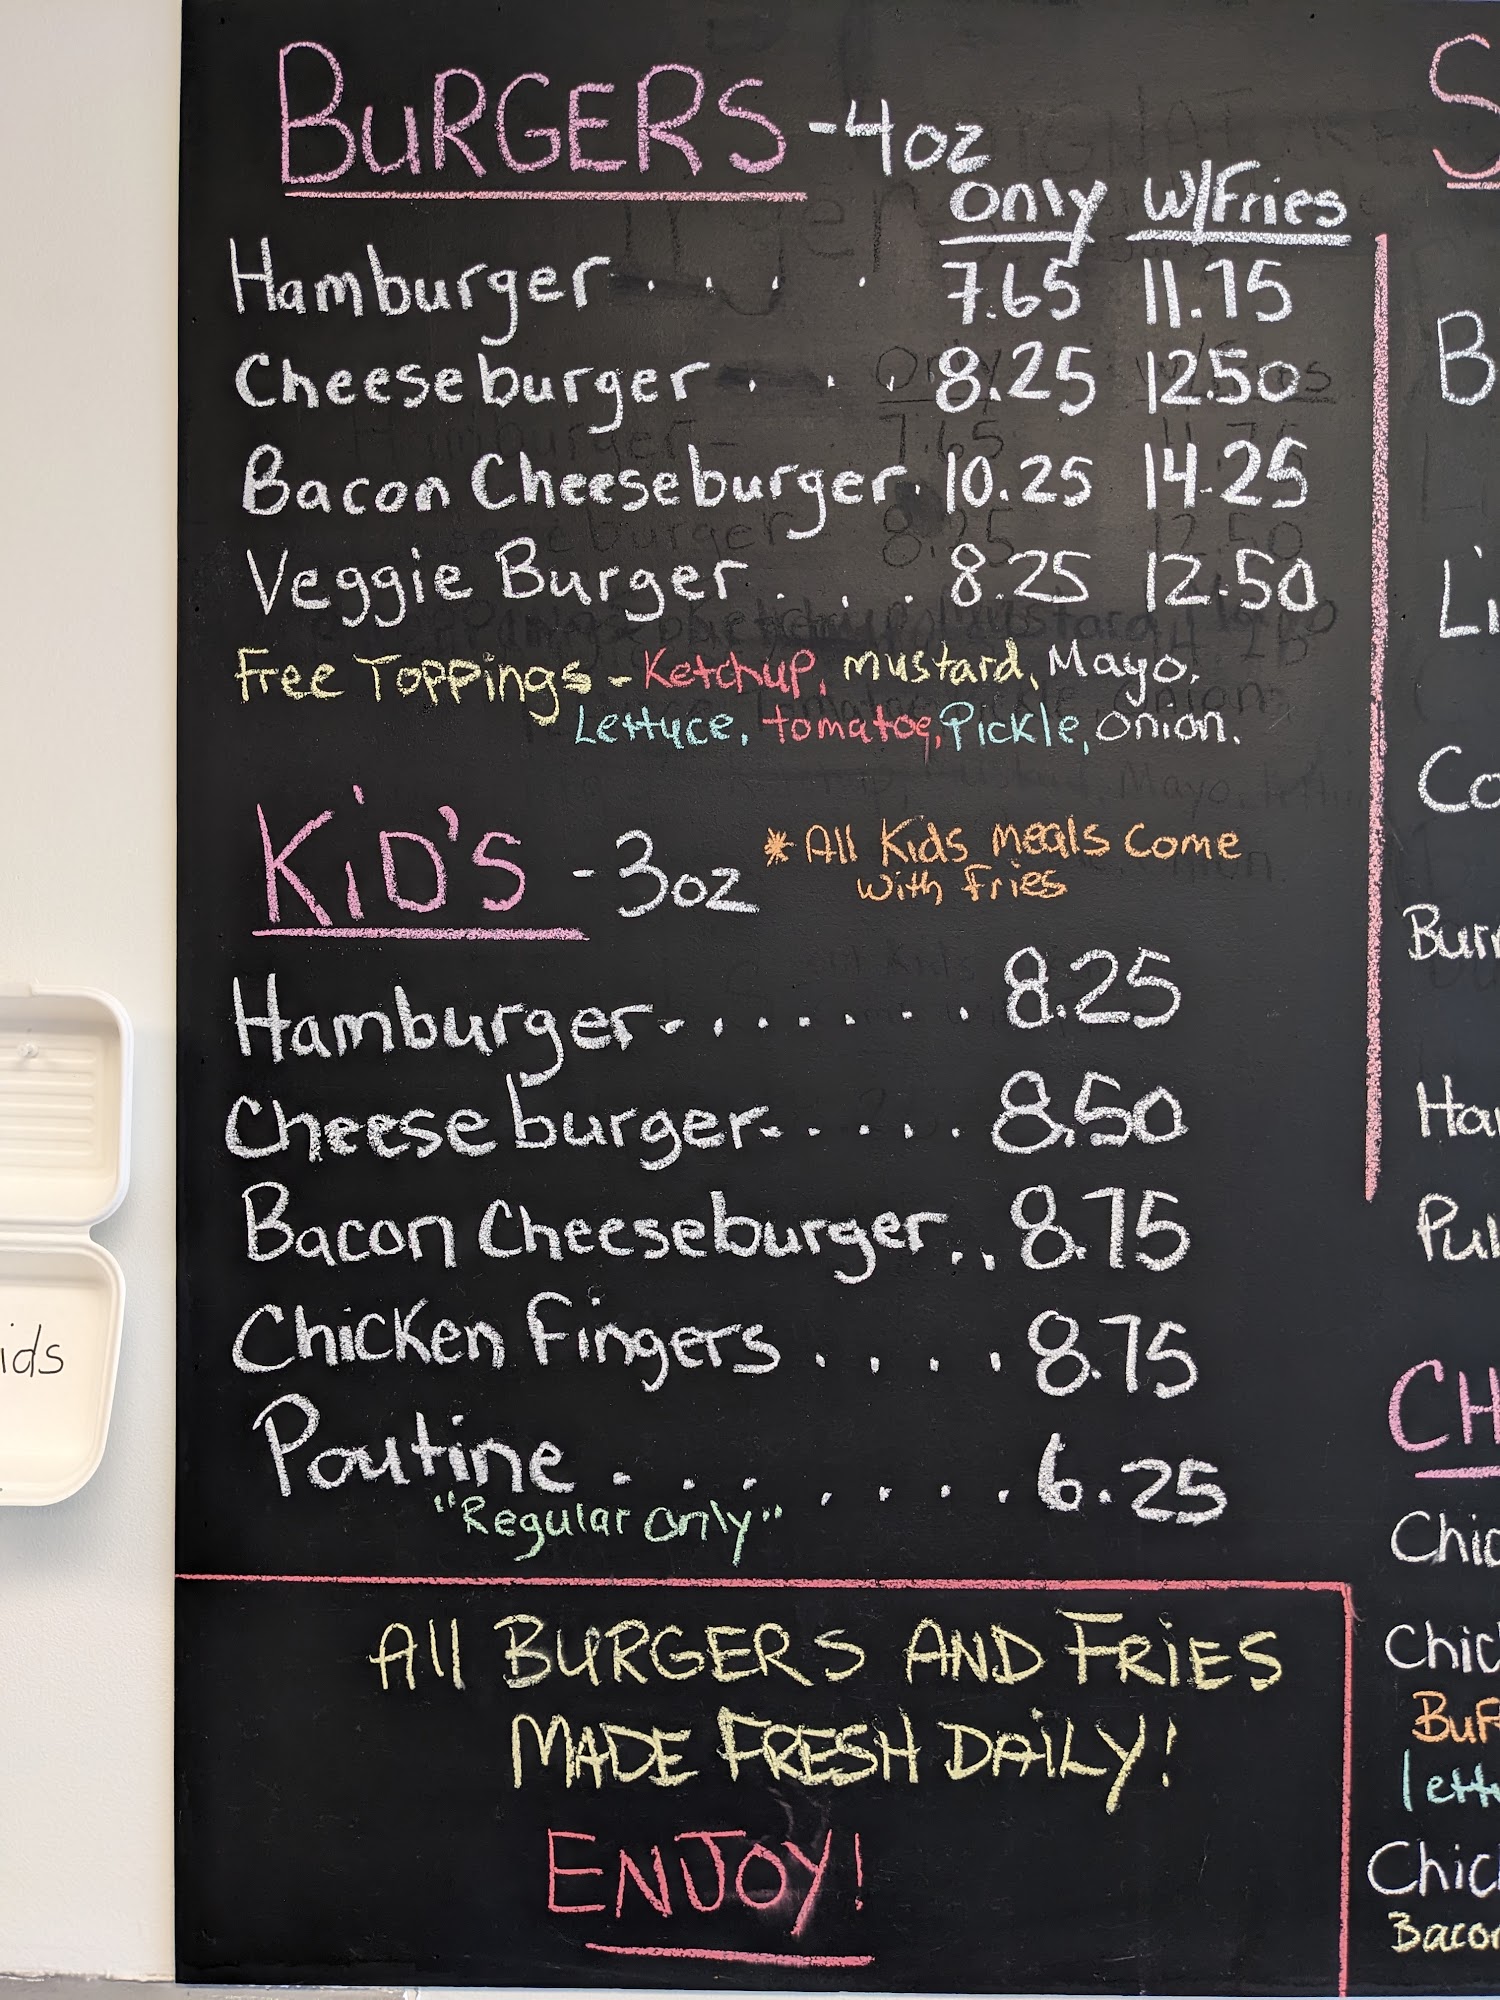 BURGERS -4oz
only w/Fries
Hamburger . . . . 7.65 11.75
Cheeseburger . . . 8.25 12.50
Bacon Cheeseburger . 10.25 14.25
Veggie Burger . . . 8.25 12.50
Free Toppings - Ketchup, mustard, Mayo,
Lettuce, tomatoe, Pickle, onion.
KiD's -3oz
* All Kids meals come
with Fries
Hamburger . . . . . . . . 8.25
Cheeseburger . . . . . . 8.50
Bacon Cheeseburger . . 8.75
Chicken Fingers . . . . 8.75
Poutine . . . . . . . 6.25
"Regular only"
All BURGERS AND FRiES
MADE FRESH DAiLY!
ENJOY!
ids
S
B
Li
Co
Bur
Ha
Pul
CH
Chic
Chic
BuF
lett
Chic
Bacon